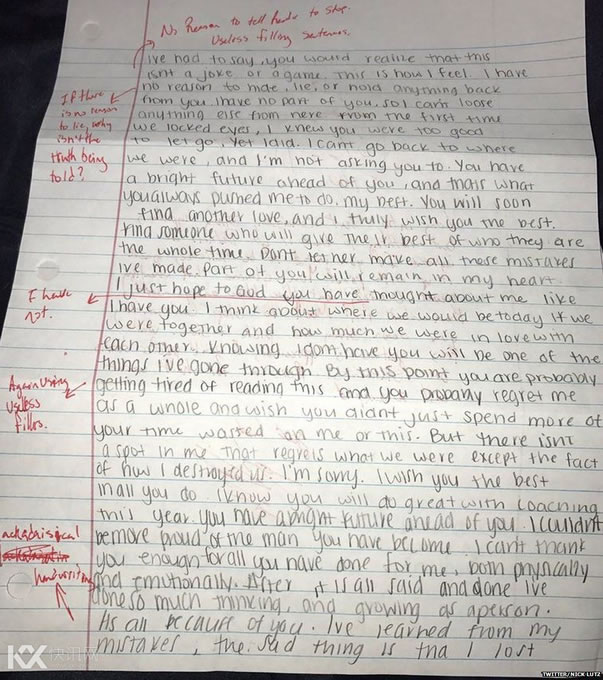 No Reason to tell Reader to stop.
Useless filling sentences.
ive had to say, you would realize that this
isnt a joke or a game. This is how I feel. I have
no reason to hide, lie, or hold anything back
from you. I have no part of you, so I cant loose
anything else from here. From the first time
we locked eyes, I knew you were too good
to let go, yet I did. I cant go back to where
we were, and I'm not asking you to. You have
a bright future ahead of you, and thats what
you always pushed me to do, my best. You will soon
find another love, and I truly wish you the best.
Find someone who will give their best of who they are
the whole time. Dont let her make all these mistakes
ive made. Part of you will remain in my heart.
I just hope to God you have thought about me like
I have you. I think about where we would be today if we
were together and how much we were in love with
each other. Knowing I dont have you will be one of the
things ive gone through. By this point you are probably
getting tired of reading this and you probably regret me
as a whole and wish you didnt just spend more of
your time wasted on me or this. But there isnt
a spot in me that regrets what we were except the fact
of how I destroyed us. I'm sorry. I wish you the best
in all you do. I know you will do great with coaching
this year. You have a bright future ahead of you. I couldnt
be more proud of the man you have become. I cant thank
you enough for all you have done for me, both physically
and emotionally. After it is all said and done ive
done so much thinking, and growing as a person.
Its all because of you. Ive learned from my
mistakes, the sad thing is tha I lost
If there
is no reason
to lie, why
isn't the
truth being
told?
I have
not.
Again using
useless
fillos.
handwriting
KX 快讯网
TWITTER/NICK LUTZ